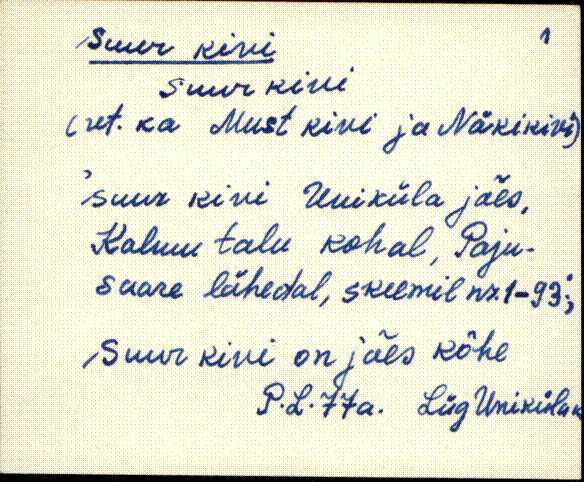 Suur kivi 1
Suur kivi
(vt. ka Must kivi ja Näkikivi)
'suur kivi Uniküla jões,
Kalmu talu kohal, Paju-
saare lähedal, skeemil nr. 1-93;
Suur kivi on jões kõhe
P.L. 77a. Lüg Uniküla k